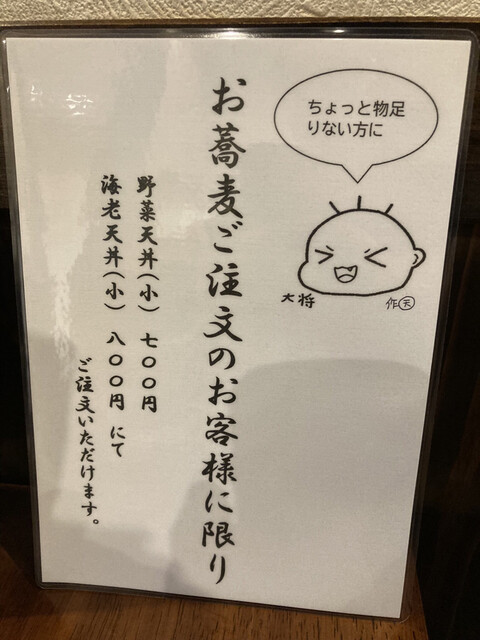 ちょっと物足
りない方に
大将
作天
お蕎麦ご注文のお客様に限り
野菜天丼(小) 七〇〇円
海老天丼(小) 八〇〇円 にて
ご注文いただけます。